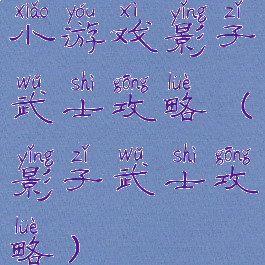 xiǎo yóu xì yǐng zǐ
小游戏影子
wǔ shì gōng lüè
武士攻略（
yǐng zǐ wǔ shì gōng
影子武士攻
lüè
略）